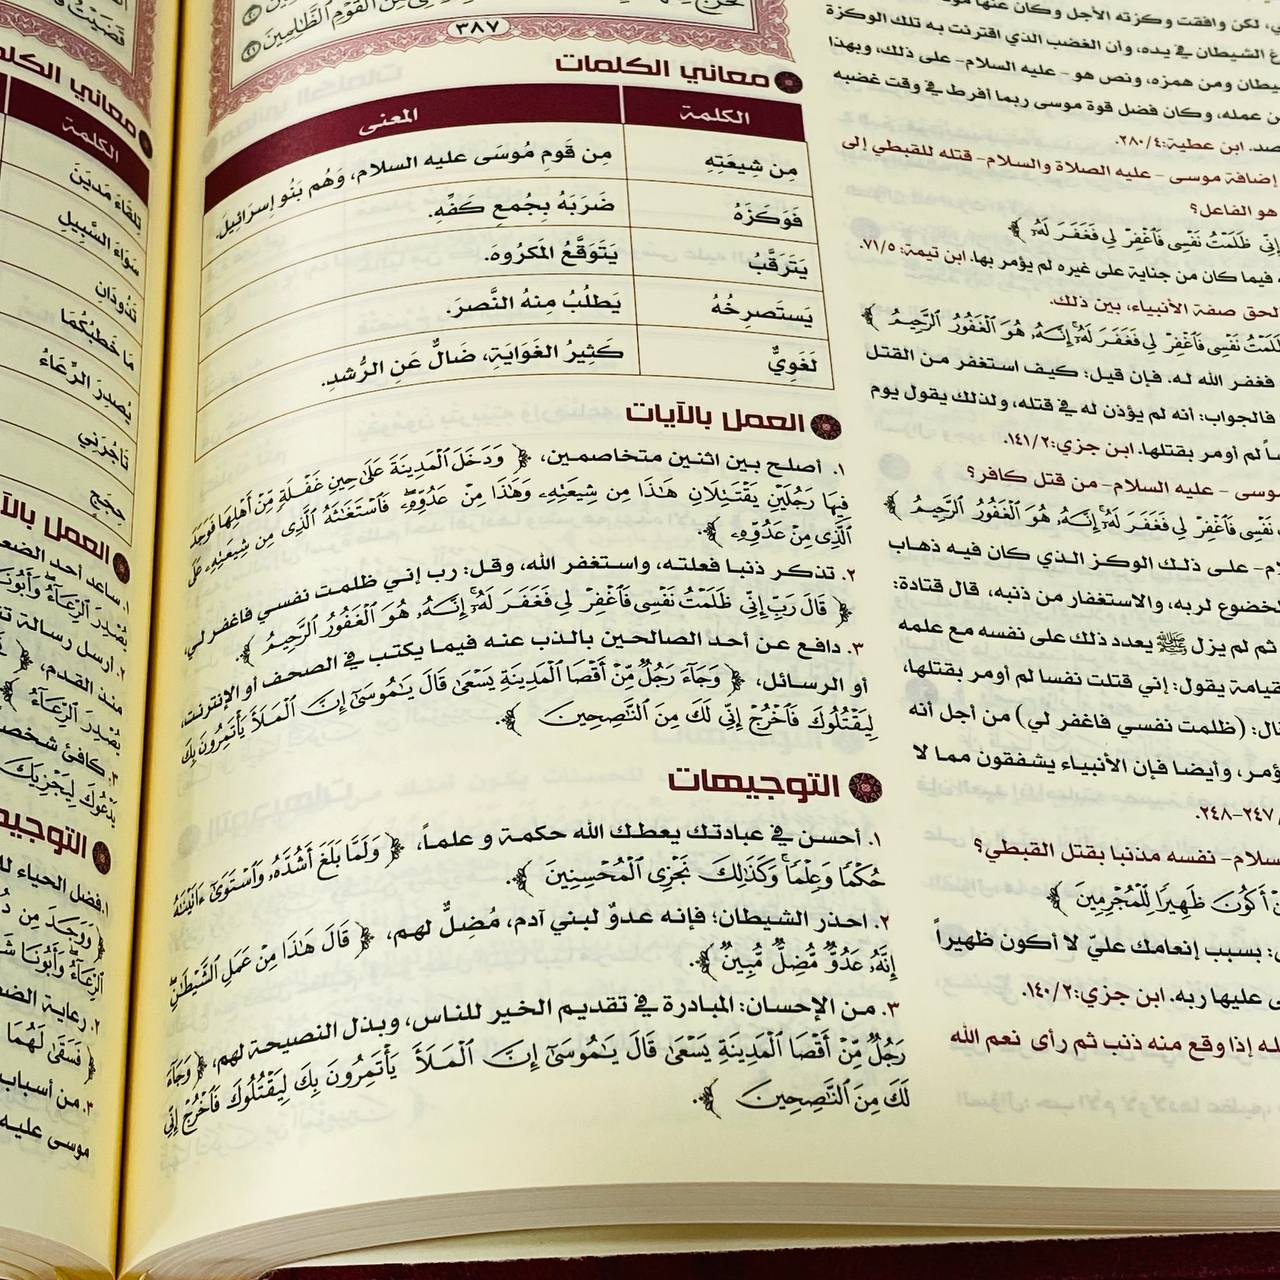 مِنَ الْقَوْمِ الظَّالِمِينَ
٣٨٧
معاني الكلمات
الكلمة المعنى
مِن شِيعَتِهِ مِن قَومِ مُوسَى عليه السلام، وَهُم بَنُو إسرَائِيلَ.
فَوَكَزَهُ ضَرَبَهُ بِجُمعِ كَفِّهِ.
يَتَرَقَّبُ يَتَوَقَّعُ المَكرُوهَ.
يَستَصرِخُهُ يَطلُبُ مِنهُ النَّصرَ.
لَغَوِيٌّ كَثِيرُ الغَوَايَةِ، ضَالٌّ عَنِ الرُّشدِ.
العمل بالآيات
١. أصلح بين اثنين متخاصمين، ﴿ وَدَخَلَ ٱلْمَدِينَةَ عَلَىٰ حِينِ غَفْلَةٍ مِّنْ أَهْلِهَا فَوَجَدَ
فِيهَا رَجُلَيْنِ يَقْتَتِلَانِ هَـٰذَا مِن شِيعَتِهِۦ وَهَـٰذَا مِنْ عَدُوِّهِۦ ۖ فَٱسْتَغَـٰثَهُ ٱلَّذِى مِن شِيعَتِهِۦ عَلَى
ٱلَّذِى مِنْ عَدُوِّهِۦ ﴾.
٢. تذكر ذنبا فعلته، واستغفر الله، وقل: رب إني ظلمت نفسي فاغفر لي،
﴿ قَالَ رَبِّ إِنِّى ظَلَمْتُ نَفْسِى فَٱغْفِرْ لِى فَغَفَرَ لَهُۥٓ ۚ إِنَّهُۥ هُوَ ٱلْغَفُورُ ٱلرَّحِيمُ ﴾.
٣. دافع عن أحد الصالحين بالذب عنه فيما يكتب في الصحف أو الإنترنت،
أو الرسائل، ﴿ وَجَآءَ رَجُلٌ مِّنْ أَقْصَا ٱلْمَدِينَةِ يَسْعَىٰ قَالَ يَـٰمُوسَىٰٓ إِنَّ ٱلْمَلَأَ يَأْتَمِرُونَ بِكَ
لِيَقْتُلُوكَ فَٱخْرُجْ إِنِّى لَكَ مِنَ ٱلنَّـٰصِحِينَ ﴾
التوجيهات
١. أحسن في عبادتك يعطك الله حكمة و علماً، ﴿ وَلَمَّا بَلَغَ أَشُدَّهُۥ وَٱسْتَوَىٰٓ ءَاتَيْنَـٰهُ
حُكْمًا وَعِلْمًا ۚ وَكَذَٰلِكَ نَجْزِى ٱلْمُحْسِنِينَ ﴾.
٢. احذر الشيطان؛ فإنه عدوٌ لبني آدم، مُضِلٌّ لهم، ﴿ قَالَ هَـٰذَا مِنْ عَمَلِ ٱلشَّيْطَـٰنِ ۖ
إِنَّهُۥ عَدُوٌّ مُّضِلٌّ مُّبِينٌ ﴾.
٣. من الإحسان: المبادرة في تقديم الخير للناس، وبذل النصيحة لهم، ﴿ وَجَآءَ
رَجُلٌ مِّنْ أَقْصَا ٱلْمَدِينَةِ يَسْعَىٰ قَالَ يَـٰمُوسَىٰٓ إِنَّ ٱلْمَلَأَ يَأْتَمِرُونَ بِكَ لِيَقْتُلُوكَ فَٱخْرُجْ إِنِّى
لَكَ مِنَ ٱلنَّـٰصِحِينَ ﴾
لكن وافقت وكزته الأجل وكان عنها
الشيطان في يده، وأن الغضب الذي اقترنت به تلك الوكزة
ومن همزه، ونص هو -عليه السلام- على ذلك، وبهذا
عمله، وكان فضل قوة موسى ربما أفرط في وقت غضبه
ابن عطية:٢٨٠/٤.
إضافة موسى - عليه الصلاة والسلام- قتله للقبطي إلى
هو الفاعل؟
إِنِّى ظَلَمْتُ نَفْسِى فَٱغْفِرْ لِى فَغَفَرَ لَهُۥٓ ﴾
فيما كان من جناية على غيره لم يؤمر بها. ابن تيمة:٧١/٥.
صفة الأنبياء، بين ذلك.
ظَلَمْتُ نَفْسِى فَٱغْفِرْ لِى فَغَفَرَ لَهُۥٓ ۚ إِنَّهُۥ هُوَ ٱلْغَفُورُ ٱلرَّحِيمُ ﴾
فغفر الله له. فإن قيل: كيف استغفر من القتل
فالجواب: أنه لم يؤذن له في قتله، ولذلك يقول يوم
لم أومر بقتلها. ابن جزي:١٤١/٢.
موسى - عليه السلام- من قتل كافر؟
نَفْسِى فَٱغْفِرْ لِى فَغَفَرَ لَهُۥٓ ۚ إِنَّهُۥ هُوَ ٱلْغَفُورُ ٱلرَّحِيمُ ﴾
على ذلك الوكز الذي كان فيه ذهاب
لربه، والاستغفار من ذنبه، قال قتادة:
ثم لم يزل ﷺ يعدد ذلك على نفسه مع علمه
يقول: إني قتلت نفسا لم أومر بقتلها،
(ظلمت نفسي فاغفر لي) من أجل أنه
وأيضا فإن الأنبياء يشفقون مما لا
٢٤٧-٢٤٨.
نفسه مذنبا بقتل القبطي؟
أَكُونَ ظَهِيرًا لِّلْمُجْرِمِينَ ﴾
بسبب إنعامك عليّ لا أكون ظهيراً
عليها ربه. ابن جزي:١٤٠/٢.
إذا وقع منه ذنب ثم رأى نعم الله
معاني
الكلمة
تِلقَاءَ مَديَنَ
سَوَاءَ السَّبِيلِ
تَذُودَانِ
مَا خَطبُكُمَا
يُصدِرَ الرِّعَاءُ
تَأجُرَنِي
حِجَجٍ
العمل
١. ساعد أحد
يُصْدِرَ ٱلرِّعَآءُ ۖ
٢. أرسل رسالة
منذ القدم،
يُصْدِرَ ٱلرِّعَآءُ
٣. كافئ
يَدْعُوكَ لِيَجْزِيَكَ
١. فضل الحياء
﴿ وَوَجَدَ مِن
ٱلرِّعَآءُ ۖ وَأَبُونَا
٢. رعاية
﴿ فَسَقَىٰ لَهُمَا
٣. من أسباب
موسى عليه